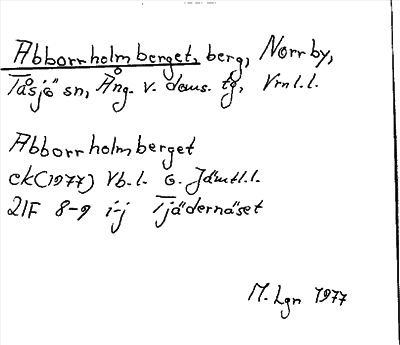 Abborrholmberget, berg, Norrby,
Tåsjö sn, Ång. v. doms. tg, Vrnl.l.
Abborrholmberget
ck(1977) Vb.l. o. Jämtl.l.
21F 8-9 i-j Tjädernäset
M. Lgn 1977